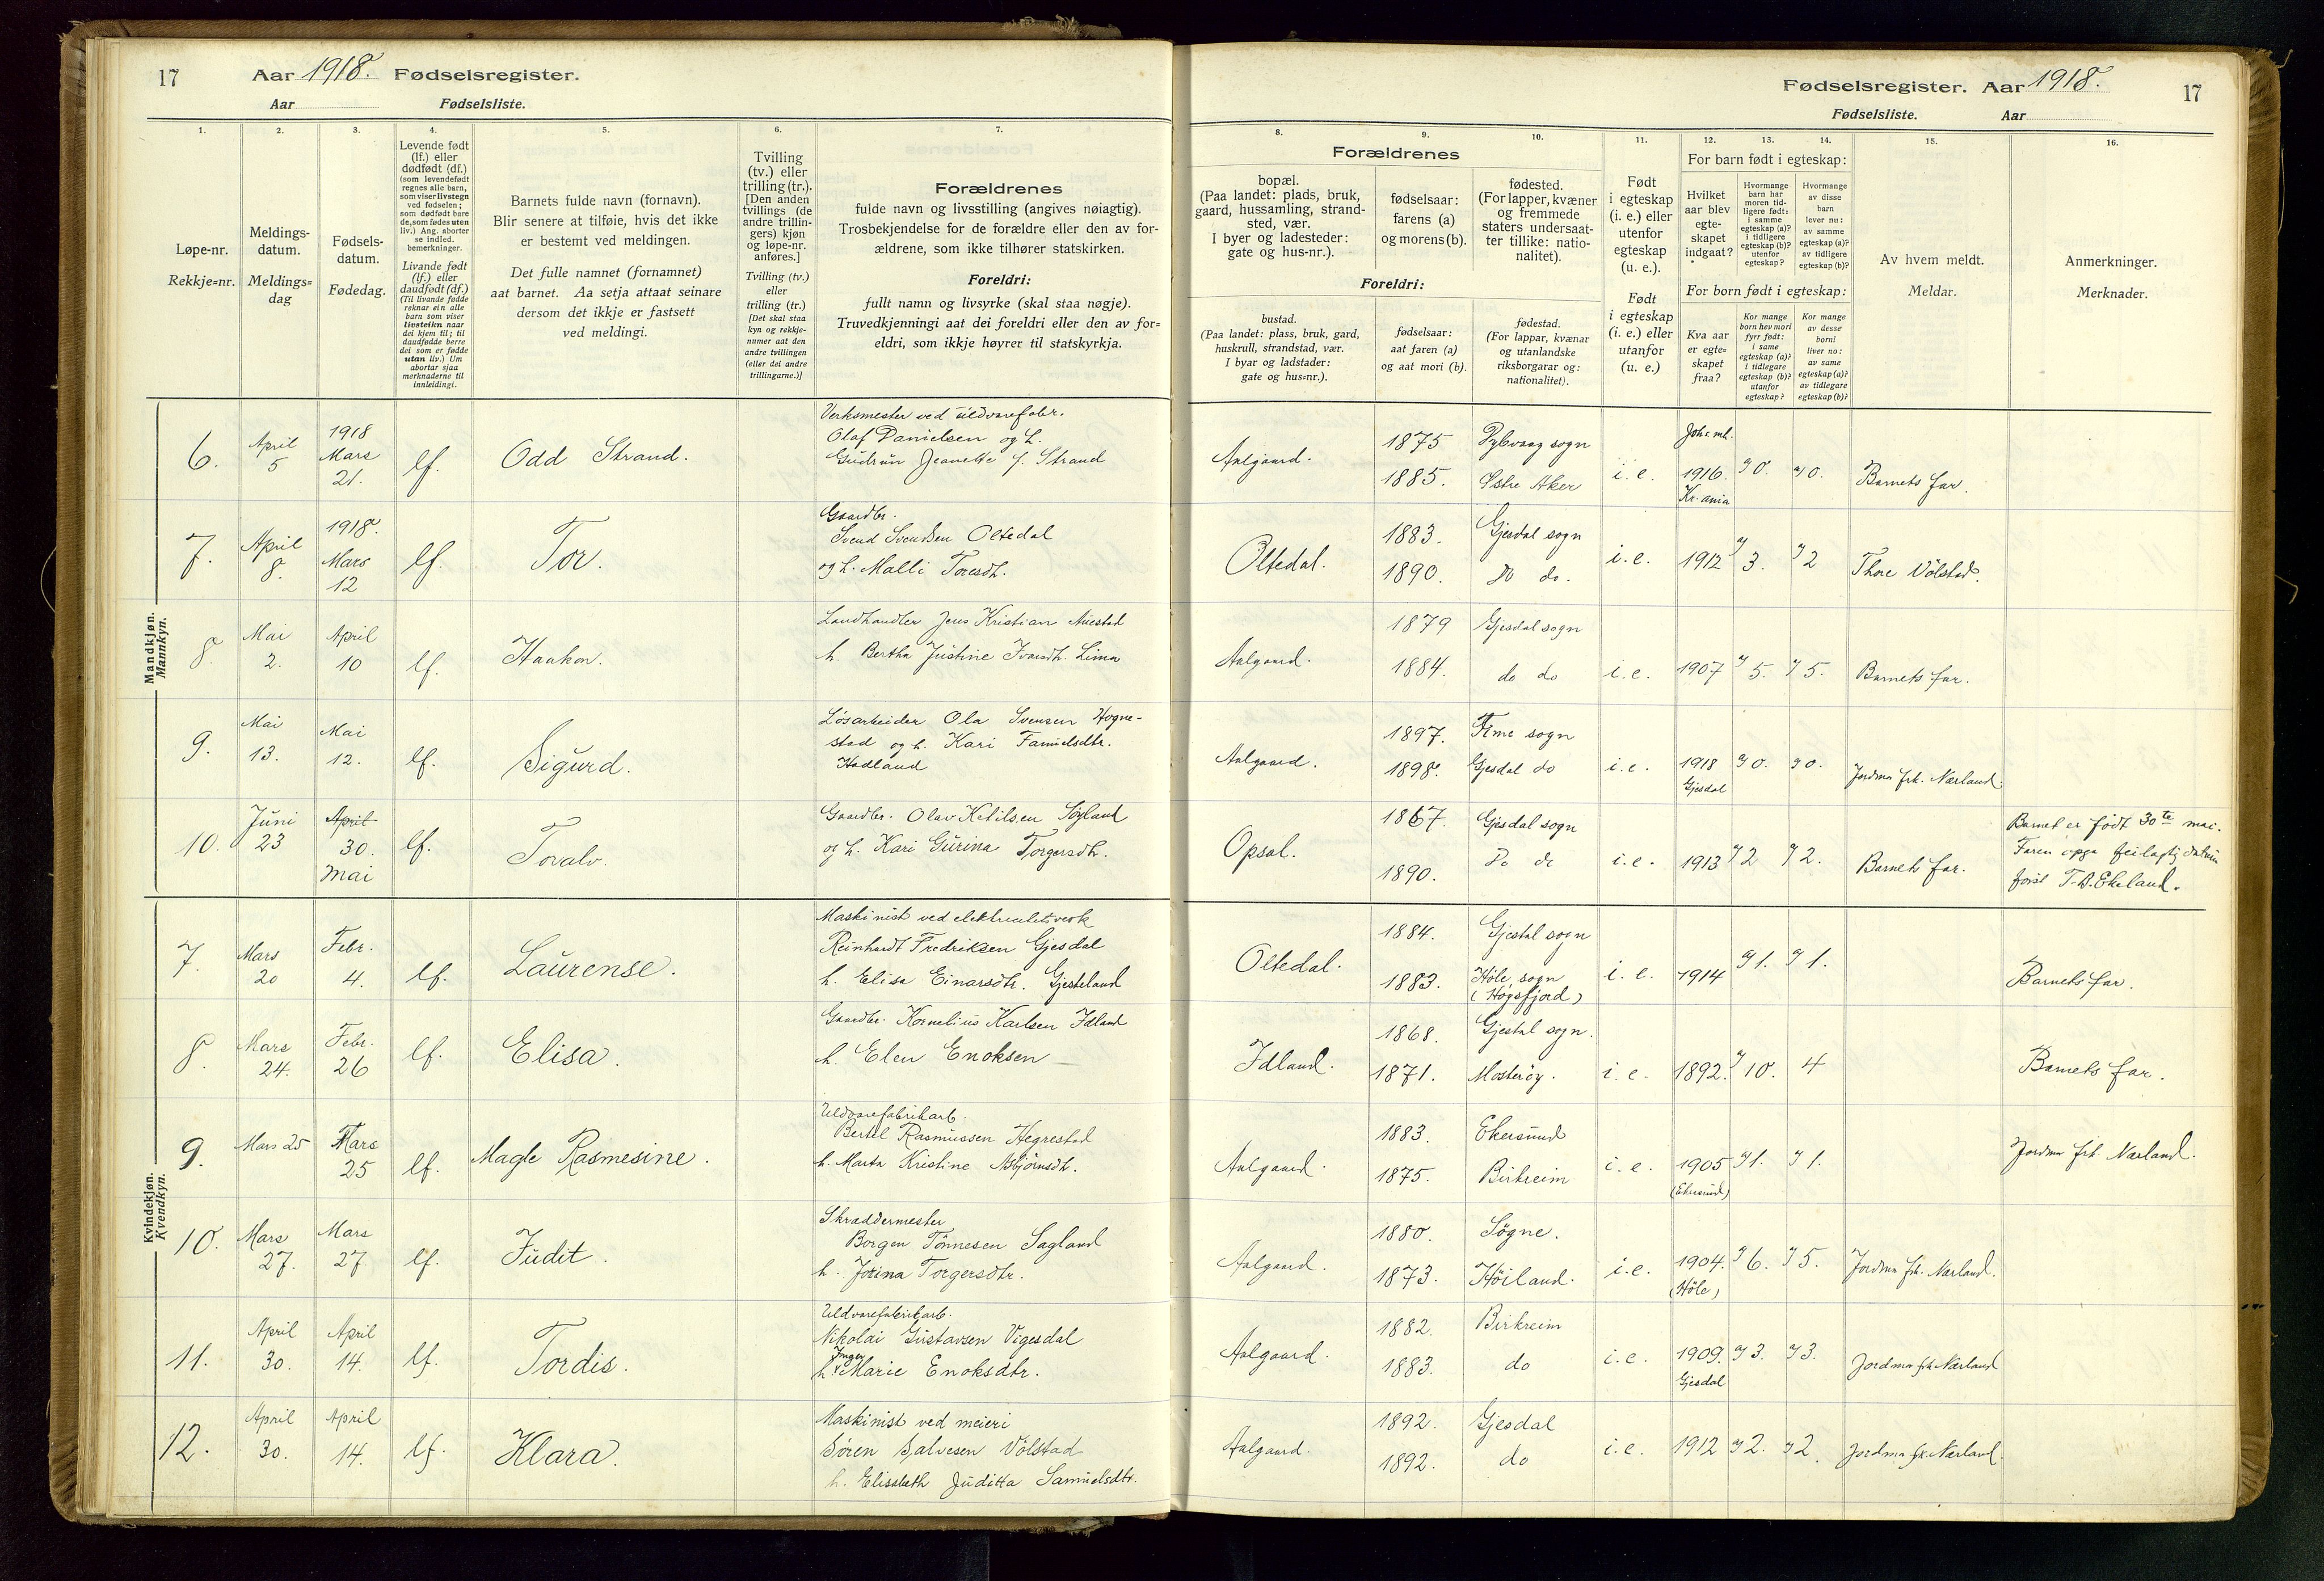 17 Aar 1918. Fødselsregister.
Aar Fødselsliste.
Fødselsregister. Aar 1918. 17
Fødselsliste. Aar
1. 2. 3. 4. 5. 6. 7.
Løpe-nr.
Rekkje=nr.
Meldings-
datum.
Meldings=
dag
Fødsels-
datum.
Fødedag.
Levende født
(lf.) eller
dødfødt (df.)
(som levendefødt
regnes alle barn,
som viser livstegn
ved fødselen;
som dødfødt bare
de, som fødes uten
liv.) Ang. aborter
se indled.
bemerkninger.
Livande født
(lf.) eller
daudfødt (df.)
(Til livande fødde
reknar ein alle
barn som viser
livsteikn naar
dei kjem til; til
daudfødde berre
dei som er fødde
utan liv.) Um
abortar sjaa
merknaderne til
innleidingi.
Barnets fulde navn (fornavn).
Blir senere at tilføie, hvis det ikke
er bestemt ved meldingen.
Det fulle namnet (fornamnet)
aat barnet. Aa setja attaat seinare
dersom det ikkje er fastsett
ved meldingi.
Tvilling
(tv.) eller
trilling (tr.).
[Den anden
tvillings (de
andre trillin-
gers) kjøn
og løpe-nr.
anføres.]
Tvilling (tv.)
eller
trilling (tr.)
[Det skal staa
kyn og rekkje-
numer aat den
andre tvillingen
(eller dei andre
trillingarne.)]
Forældrenes
fulde navn og livsstilling (angives nøiagtig).
Trosbekjendelse for de forældre eller den av for-
ældrene, som ikke tilhører statskirken.
Foreldri:
fullt namn og livsyrke (skal staa nøgje).
Truvedkjenningi aat dei foreldri eller den av for=
eldri, som ikkje høyrer til statskyrkja.
8. 9. 10. 11. 12. 13. 14. 15. 16.
Forældrenes
bopæl.
(Paa landet: plads, bruk,
gaard, hussamling, strand-
sted, vær.
I byer og ladesteder:
gate og hus-nr.).
fødselsaar:
farens (a)
og morens (b).
fødested.
(For lapper, kvæner
og fremmede
staters undersaat-
ter tillike: natio-
nalitet).
Foreldri:
bustad.
(Paa landet: plass, bruk, gard,
huskrull, strandstad, vær.
I byar og ladstader:
gate og hus=nr.).
fødselsaar:
aat faren (a)
og aat mori (b).
fødestad.
(For lappar, kvænar
og utanlandske
riksborgarar og:
nationalitet).
Født
i egteskap
(i. e.) eller
utenfor
egteskap
(u. e.).
Født
i egteskap
(i. e.) eller
utanfor
(u. e.)
For barn født i egteskap:
Hvilket
aar blev
egte-
skapet
indgaat?
Hvormange
barn har
moren tid-
ligere født:
i samme
egteskap (a)?
i tidligere
egteskap (b)?
utenfor
egteskap?
Hvormange
av disse
barn
lever nu:
av samme
egteskap (a)?
av tidligere
egteskap (b)?
For born født i egteskap:
Kva aar
er egte=
skapet
fraa?
Kor mange
born hev mori
fyrr født:
i same
egteskap (a)?
i tidlegare
egteskap (b)?
utanfor
egteskap?
Kor mange
av desse
borni
liver no:
av same
egteskap (a)?
av tidlegare
egteskap (b)?
Av hvem meldt.
Meldar.
Anmerkninger.
Merknader.
Mandkjøn.
Mannkyn.
6. April 5 1918 Mars 21. lf. Odd Strand.
Verksmester ved uldvarefabr.
Olaf Danielsen og h.
Gudrun Jeanette f. Strand
Aalgaard. 1875 sogn
1885. Østre Aker i. e. 1916. Kr.ania 0. 0. Barnets far.
7. April 8. 1918. Mars 12 lf. Tor.
Gaardbr.
Svend Svendsen Oltedal
og h. Malli Toresdt.
Oltedal. 1883. Gjesdal sogn
1890. Do do. i. e. 1912 3. 2 Thore Vølstad.
8. Mai 2. April 10 lf. Haakon.
Landhandler Jens Kristian Auestad
h. Bertha Justine Ivarsdt. Lima
Aalgaard. 1879 Gjesdal sogn
1884. do do i. e. 1907 5. 5. Barnets far.
9. Mai 13. Mai 12. lf. Sigurd.
Løsarbeider Ola Svensen Hogne-
stad og h. Kari Danielsdtr.
Hadland
Aalgaard. 1897. Time sogn
1898. Gjesdal do i. e. 1918 Gjesdal 0. 0. Jordmor frk. Nærland.
10. Juni 23 April 30. Mai lf. Toralv.
Gaardbr. Olav Ketilsen Søyland
og h. Kari Gurina Torgersdt.
Opsal. 1867. Gjesdal sogn
1890. Do do i. e. 1913 2 2. Barnets far.
Barnet er født 30te mai.
Faren opga feilagtig datum
først T. B. Ekeland.
Kvindekjøn.
Kvendkyn.
7. Mars 20 Febr. 4. lf. Laurense.
Maskinist ved elektricitetsverk
Reinhardt Fredriksen Gjesdal
h. Elisa Einarsdtr. Gjesteland
Oltedal. 1884. Gjestal sogn
1883. Høle sogn
(Høgsfjord) i. e. 1914 1. 1. Barnets far.
8. Mars 24. Febr. 26 lf. Elisa.
Gaardbr. Kornelius Karlsen Idland
h. Elen Enoksen
Idland. 1868. Gjestal sogn.
1871. Mosterøy. i. e. 1892. 10. 4 Barnets far.
9. Mars 25 Mars 25 lf. Magle Rasmesine.
Uldvarefabrikarb.
Bertel Rasmussen Hegrestad
h. Marta Kristine Asbjørnsdt.
Aalgaard. 1883. Ekersund
1875. Birkreim i. e. 1905 (Ekersund) 1. 1. Jordmor frk. Nærland.
10. Mars 27. Mars 27 lf. Judit.
Skræddermester
Borgen Tønnesen Sagland
h. Jorina Torgersdtr.
Aalgaard. 1880. Søgne.
1873. Høiland. i. e. 1904. (Høle) 6. 5. Jordmor frk. Nærland.
11. April 30. April 14. lf. Tordis.
Uldvarefabrikarb.
Nikolai Gustavsen Vigesdal
h. Inger Marie Enoksdtr.
Aalgaard. 1882. Birkreim
1883. do i. e. 1909. Gjesdal 3. 3. Jordmor frk. Nærland
12. April 30. April 14. lf. Klara.
Maskinist ved meieri
Søren Salvesen Vølstad
h. Elisabeth Juditta Samuelsdtr.
Aalgaard. 1892. Gjesdal
1892. do i. e. 1912 2. 2. Jordmor frk. Nærland.